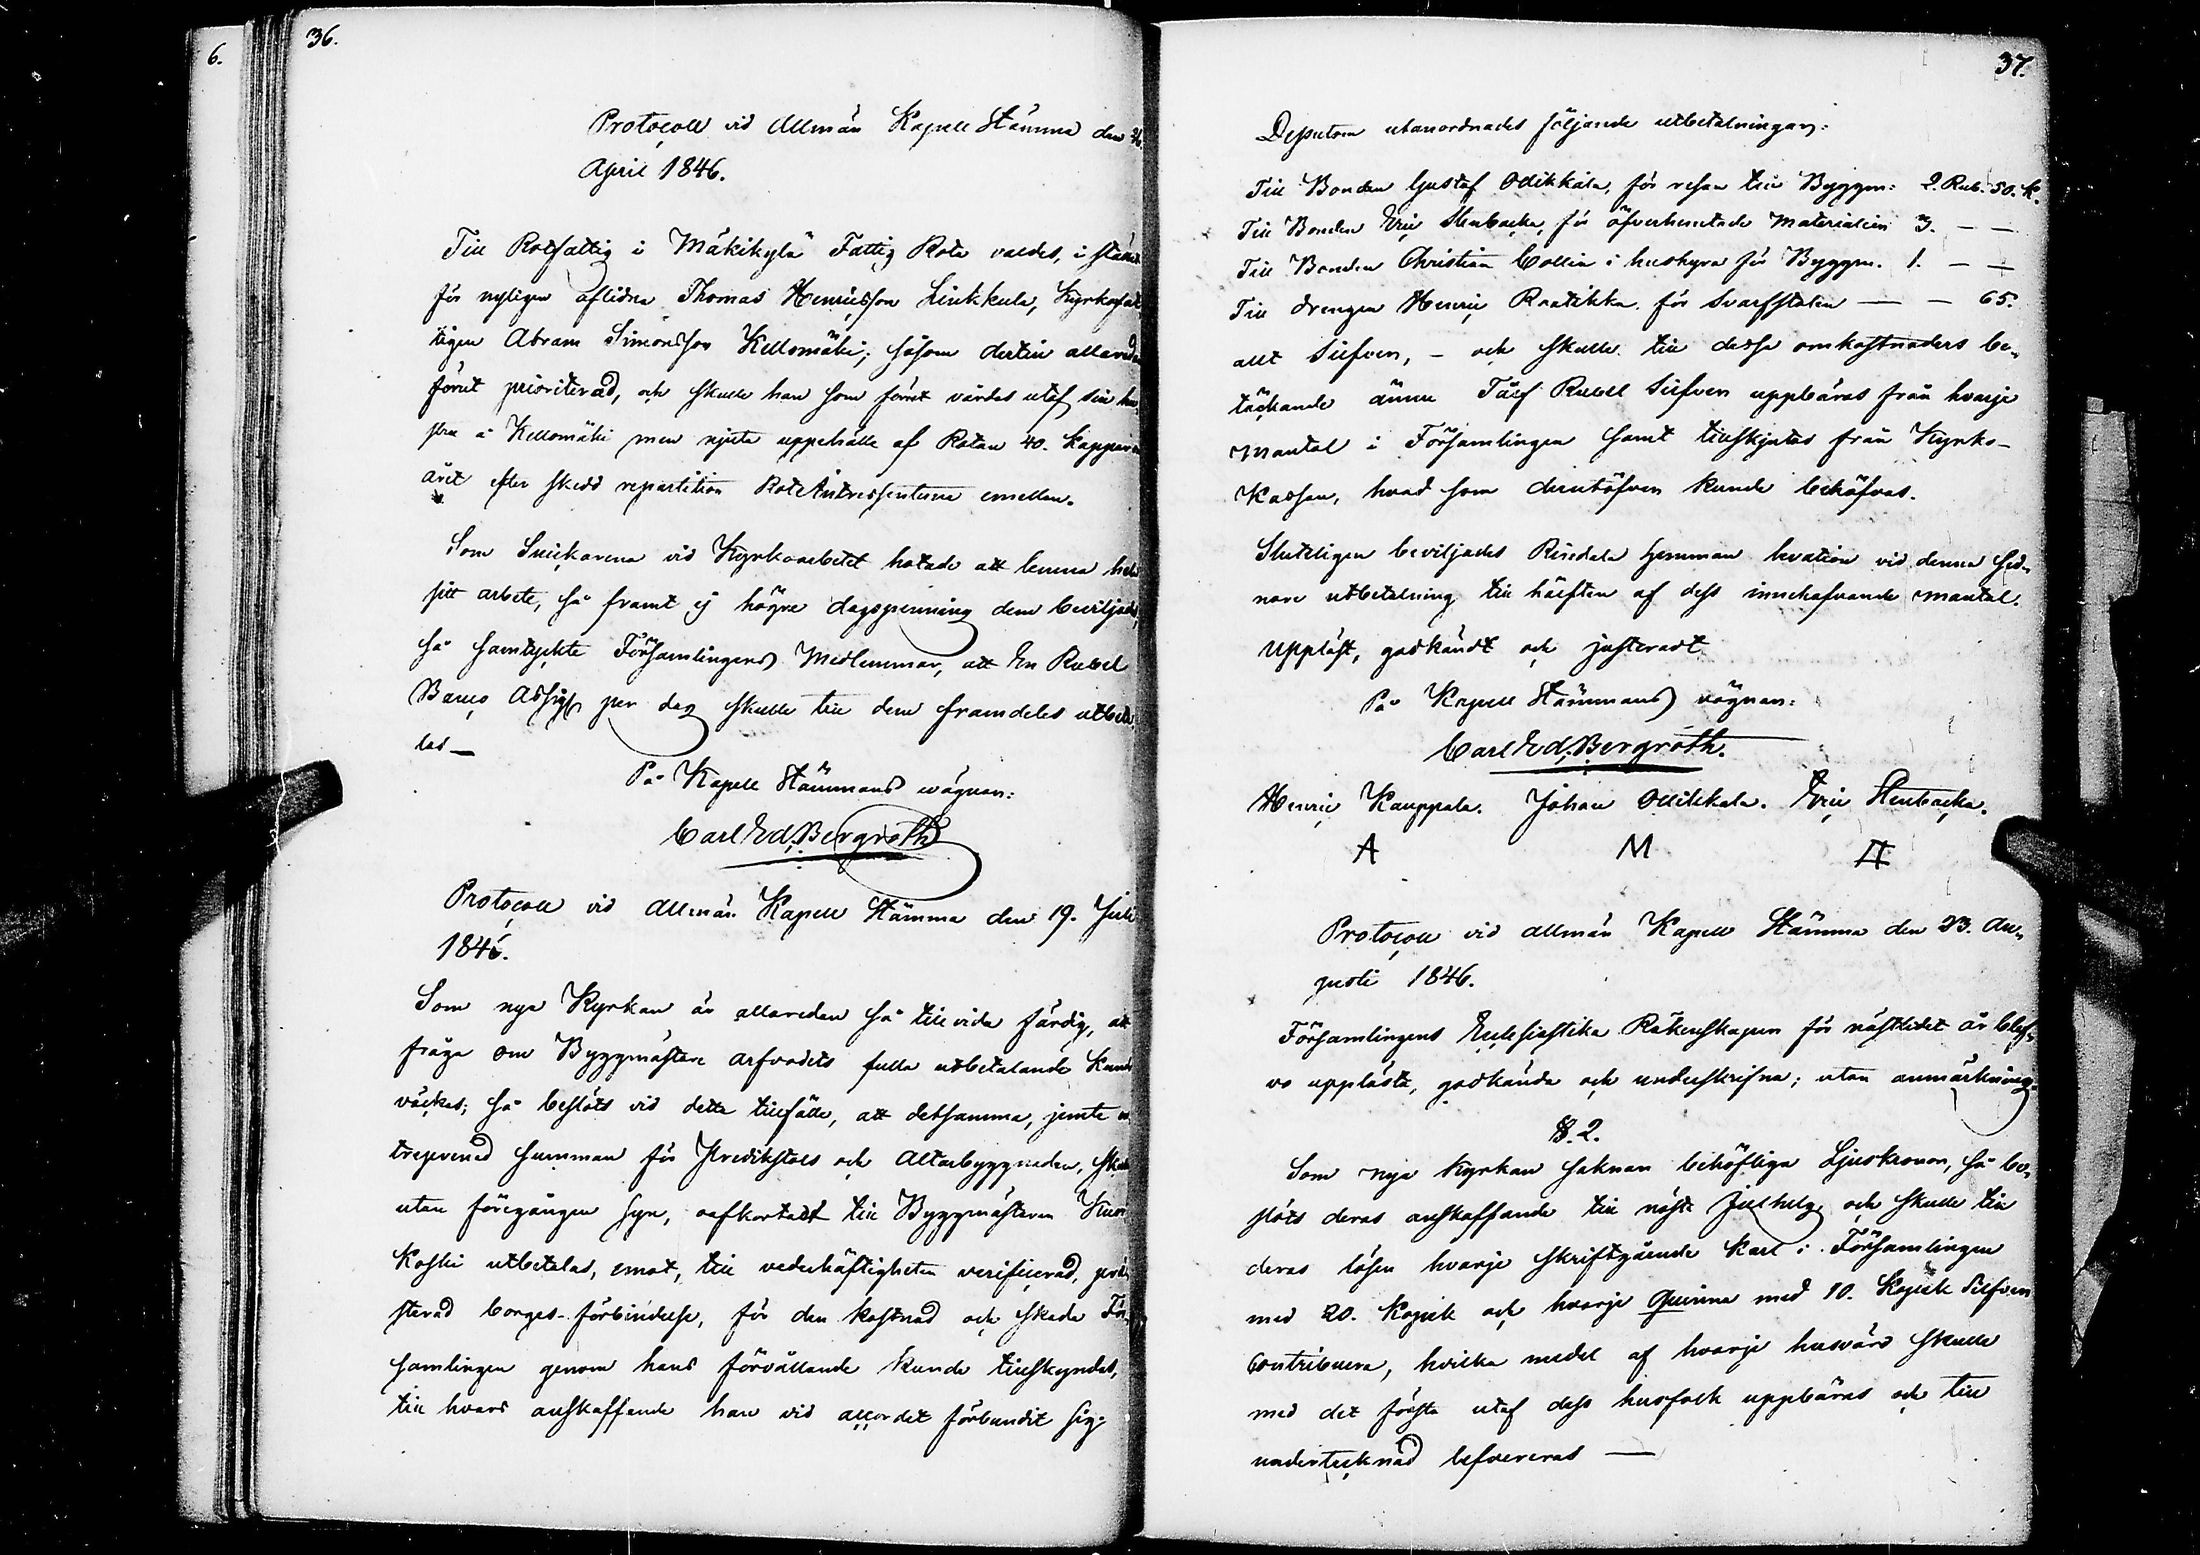 6.
36.
Protocoll vid Allmän Kapell Stämma den 26.
April 1846.
Till Rotfattig i Mäkikylä Fattig Rota valdes, i stället
för nyligen aflidna Thomas Henricsson Liukkula, Kyrkofat
tigen Abram Simonsson Kellomäki; såsom dertill allareda
förut prioriterad, och skulle han som förut vårdas utaf sin hu
stru å Kellomäki men njuta uppehälle af Rotan 40. kappar
året efter skedd repartition RoteIntressenterne emellan.
Som Snickarena vid Kyrkoarbetet hotade att lemna hela
sitt arbete, så framt ej högre dagspenning dem beviljades,
så samtyckte Församlingens Medlemmar, att En Rubel
Banco Assign per dag skulle till dem framdeles utbeta
las —
På Kapell Stämmans wägnar:
Carl Ed. Bergroth
Protocoll vid Allmän Kapell Stämma den 19. Juli
1846.
Som nya Kyrkan är allaredan så till vida färdig, att
fråga om Byggmästare arfvodets fulla utbetalande kunde
väckas; så beslöts vid detta tillfälle, att detsamma, jemte en
treprenad summan för Predikstols och Altarbyggnaden, skulle
utan föregången syn, oafkortadt till Byggmästaren Kuor
koski utbetalas, emot, till vederhäftigheten verificerad, præ
sterad borges-förbindelse, för den kostnad och skada För
samlingen genom hans förvållande kunde tillskyndas,
till hvars anskaffande han vid accordet förbundit sig.
37.
Dessutom utanordnades följande utbetalningar:
Till Bonden Gustaf Ollikkala, för resan till Byggm: 2. Rub. 50. k.
Till Bonden Eric Stenbacka, för öfverhemtade Materialier 3. — —
Till Bonden Christian Collin i hushyra för Byggm. 1. — —
Till drengen Henric Raatikka för Svarfstolen — — 65.
allt Silfver, – och skulle till dessa omkostnaders be-
täckande ännu Tolf Rubel Silfver uppbäras från hvarje
Mantal i Församlingen samt tillskjutas från Kyrko-
Kassan, hvad som derutöfver kunde behöfvas.
Slutligen beviljades Riisdala hemman levation vid denna sed-
nare utbetalning till hälften af dess innehafvande mantal.
Uppläst, godkändt och justeradt
På Kapell Stämmans vägnar:
Carl Ed. Bergroth.
Henric Kauppala. Johan Ollikkala. Eric Stenbacka.
A M
Protocoll vid allmän Kapell Stämma den 23. Au-
gusti 1846.
Församlingens Ecclesiastika Räkenskaper för nästledet år blef-
vo upplästa, godkända och underskrifna; utan anmärkning.
§. 2.
Som nya Kyrkan saknar behöfliga Ljuskronor, så be-
slöts deras anskaffande till nästa Julhelg, och skulle till
deras lösen hvarje skriftgående karl i Församlingen
med 20. Kopek och hvarje Qvinna med 10. Kopek Silfver
contribuera, hvilka medel af hvarje husvärd skulle
med det första utaf dess husfolk uppbäras och till
undertecknad lefvereras —